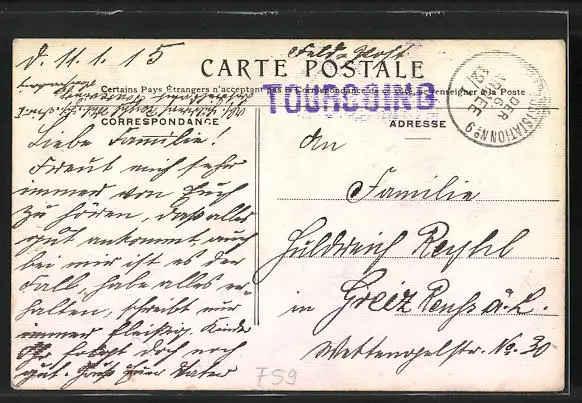 d. 11.1.15
Feld-Post.
CARTE POSTALE
Certains Pays Étrangers n'acceptent pas la Correspondance au Se renseigner à la Poste.
TOURCOING
CORRESPONDANCE
ADRESSE
DER
ARMEE
Liebe Familie!
Freut mich sehr
immer von Euch
zu hören, daß alles
gut ankommt, auch
bei mir ist es der
Fall, habe alles er-
halten, schreibt nur
immer fleißig. Kinder
folgt doch noch
gut. Gruß Euer Vater
An
Familie
Huldreich
in Greiz Reuß ä. L.
str. No. 30
F59